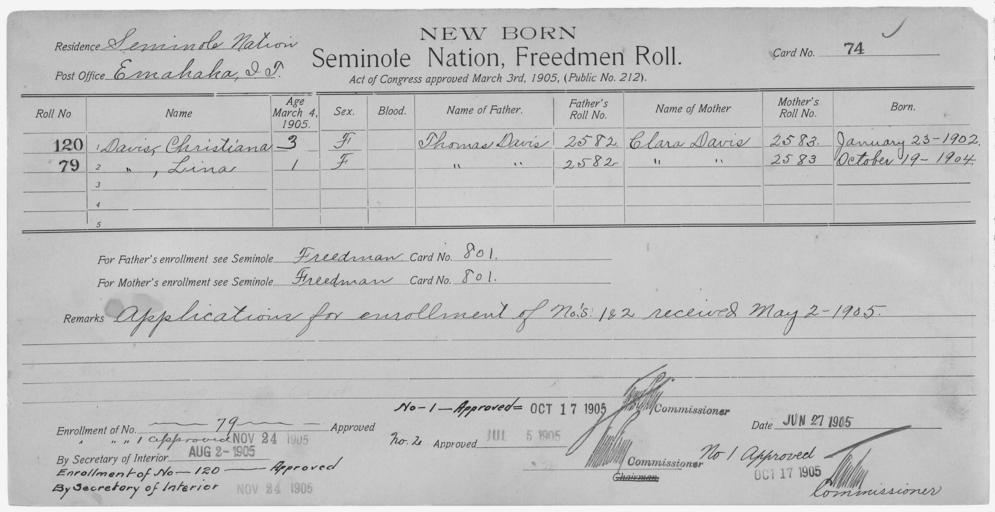 NEW BORN
Seminole Nation, Freedmen Roll.
Act of Congress approved March 3rd, 1905, (Public No. 212).
Residence Seminole Nation
Post Office Emahaka, I.T.
Card No. 74
Roll No Name Age March 4, 1905. Sex. Blood. Name of Father. Father's Roll No. Name of Mother Mother's Roll No. Born.
120 1 Davis, Christiana 3 F Thomas Davis 2582 Clara Davis 2583. January 23-1902.
79 2 " , Lina 1 F " " 2582 " " 2583 October 19-1904.
3
4
5
For Father's enrollment see Seminole Freedman Card No. 801.
For Mother's enrollment see Seminole Freedman Card No. 801.
Remarks Applications for enrollment of No's. 1&2 received May 2-1905.
No-1-Approved= OCT 17 1905 Commissioner
Enrollment of No. 79 Approved
Date JUN 27 1905
" " " 1 approved NOV 24 1905
No. 2 Approved JUL 5 1905
By Secretary of Interior AUG 2-1905
Commissioner
Chairman.
No 1 Approved
OCT 17 1905
Commissioner
Enrollment of No-120 Approved
By Secretary of Interior NOV 24 1905